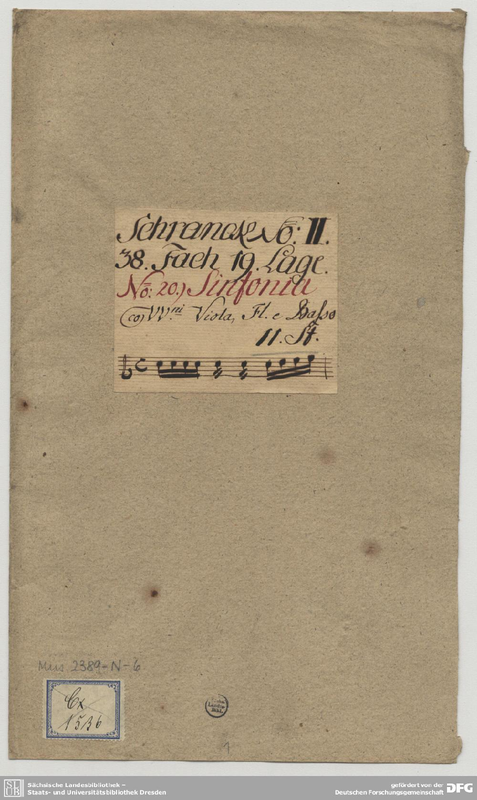 Schranck No: II.
38. Fach 19. Lage.
No: 20.) Sinfonia
co VV.ni Viola, Fl. e Basso
11. St.
Mus. 2389-N-6
Cx
1536
1
SLUB
Sächsische Landesbibliothek –
Staats- und Universitätsbibliothek Dresden
gefördert von der
Deutschen Forschungsgemeinschaft
DFG